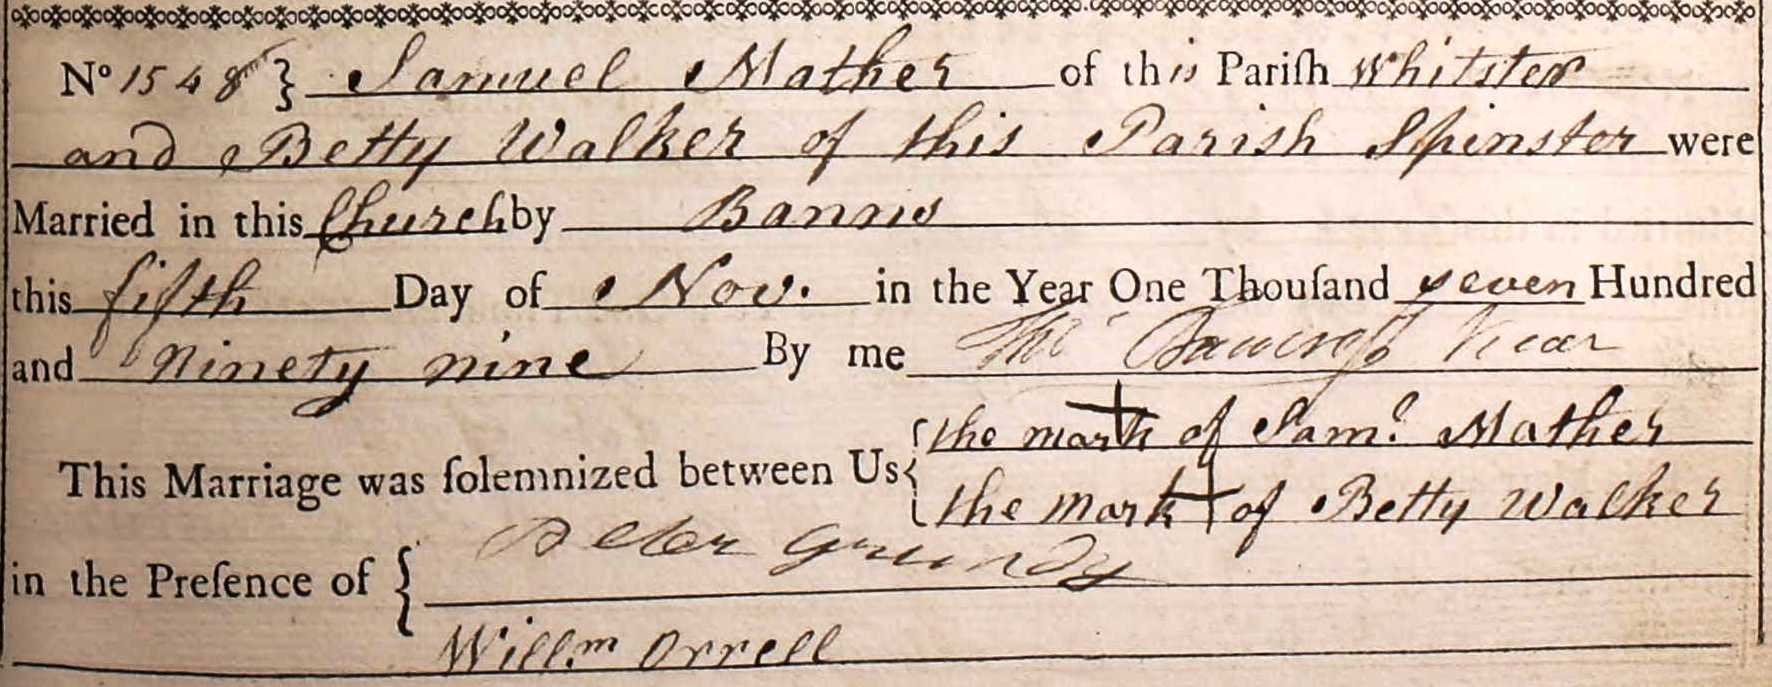 No 1548 } Samuel Mather of this Pariſh Whitster
and Betty Walker of this Parish Spinster were
Married in this Church by Banns
this fifth Day of Nov. in the Year One Thouſand seven Hundred
and Ninety nine By me Thos Bancroft Vicar
This Marriage was ſolemnized between Us { the mark of Saml. Mather
the mark of Betty Walker
in the Preſence of { Peter Grundy
Willm Orrell